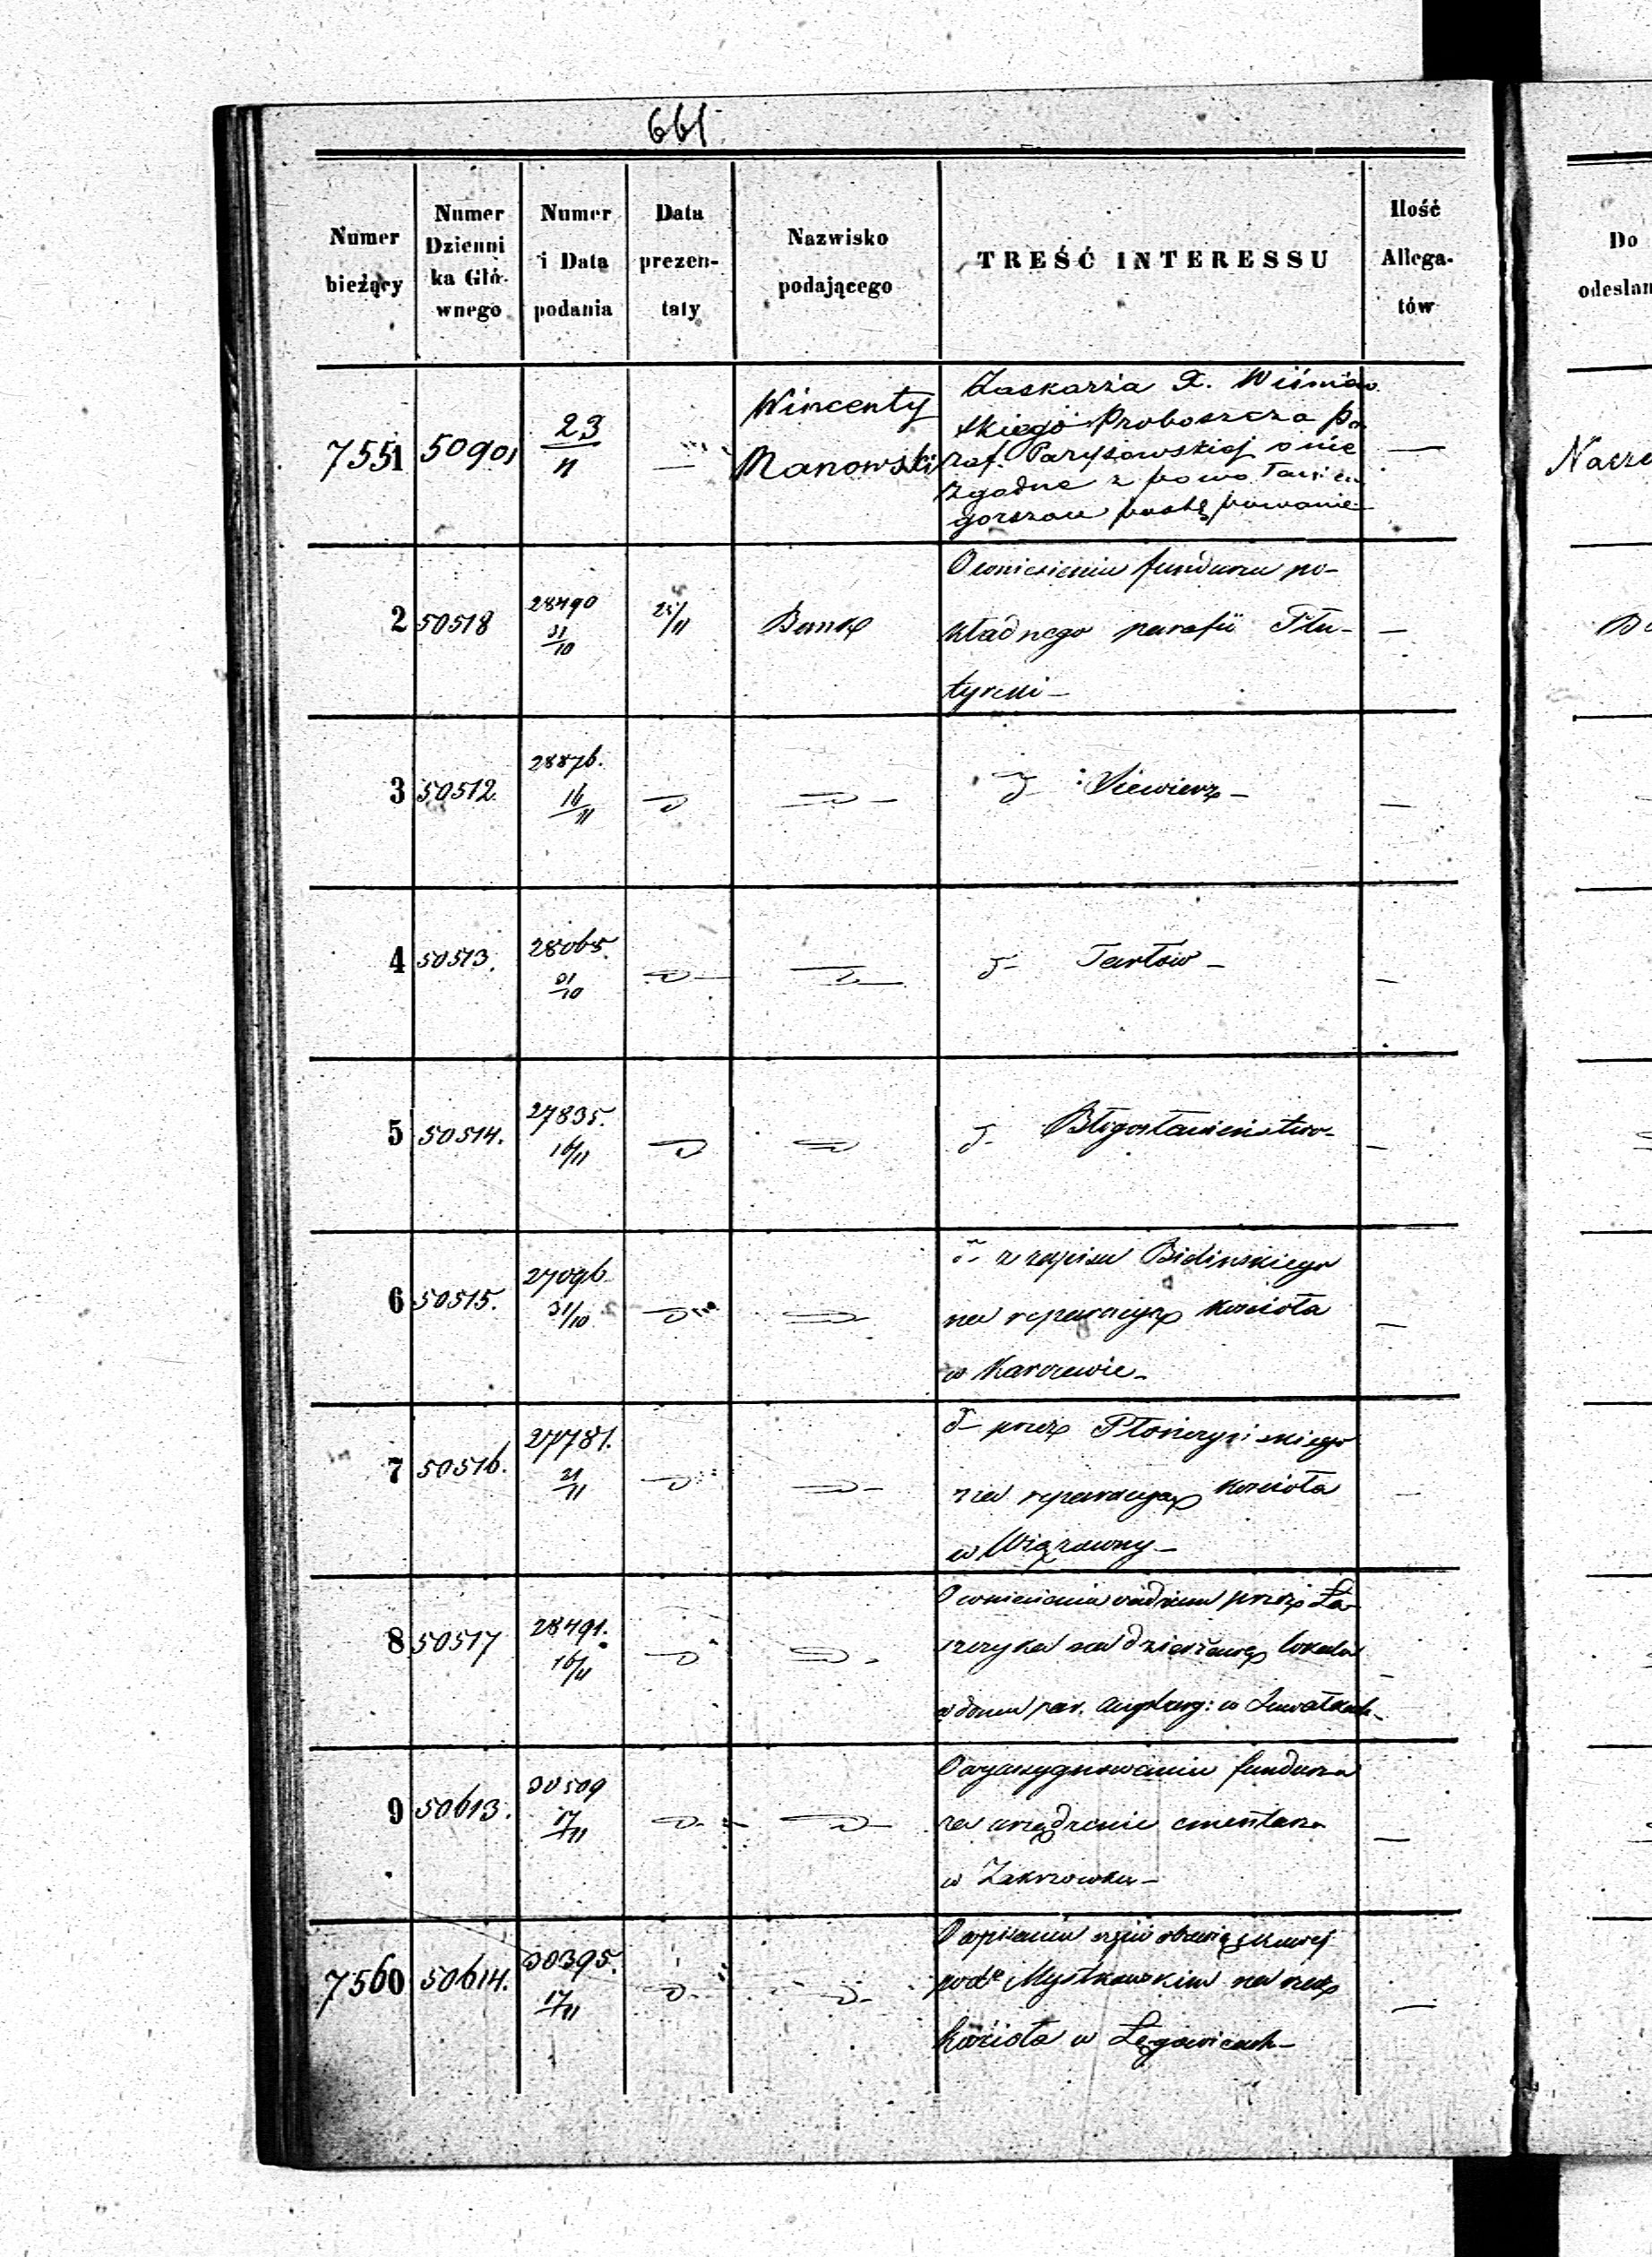 661.
Numer bieżący
Numer Dzienni ka Głó- wnego
Numer i Data podania
Data prezen- taty
Nazwisko podającego
TREŚĆ INTERESSU
Ilość Allega- tów
Do odesłan
7551 50901 23/11 — Wincenty Manowski
Zaskarża X. Wiśniew
skiego Proboszcza pa
raf. Parysowskiej o nie
zgodne z powołaniem
gorszące postępowanie —
2 50518 28490 31/10 25/11 Bank
O wniesieniu funduszu po-
kładnego parafii Płu- —
tyrski —
3 50512 28876. 16/11
d- Siewierz —
4 50513. 28065. 31/10
d- Tarłów —
5 50514. 27835. 16/11
d- Błogosławieństwo —
6 50515. 27096 31/10
d- z zapisu Bidinskiego
na reperacyą kościoła
w Karczewie —
7 50516. 27781. 21/11
d- przez Płończyńskiego
na reperacyą kościoła
w Wiązowny —
8 50517 28491. 16/11
O wniesieniu vadium przez Ła
szczyka na dzierżawę lokalu
w domu par. Augsburg: w Suwałkach —
9 50613. 30509 17/11
O wyassygnowaniu funduszu
na urządzenie cmentarza
w Zakrzowku —
7560 50614. 30395. 17/11
Mystkowskim na rzecz
kościoła w Łęgowicach —